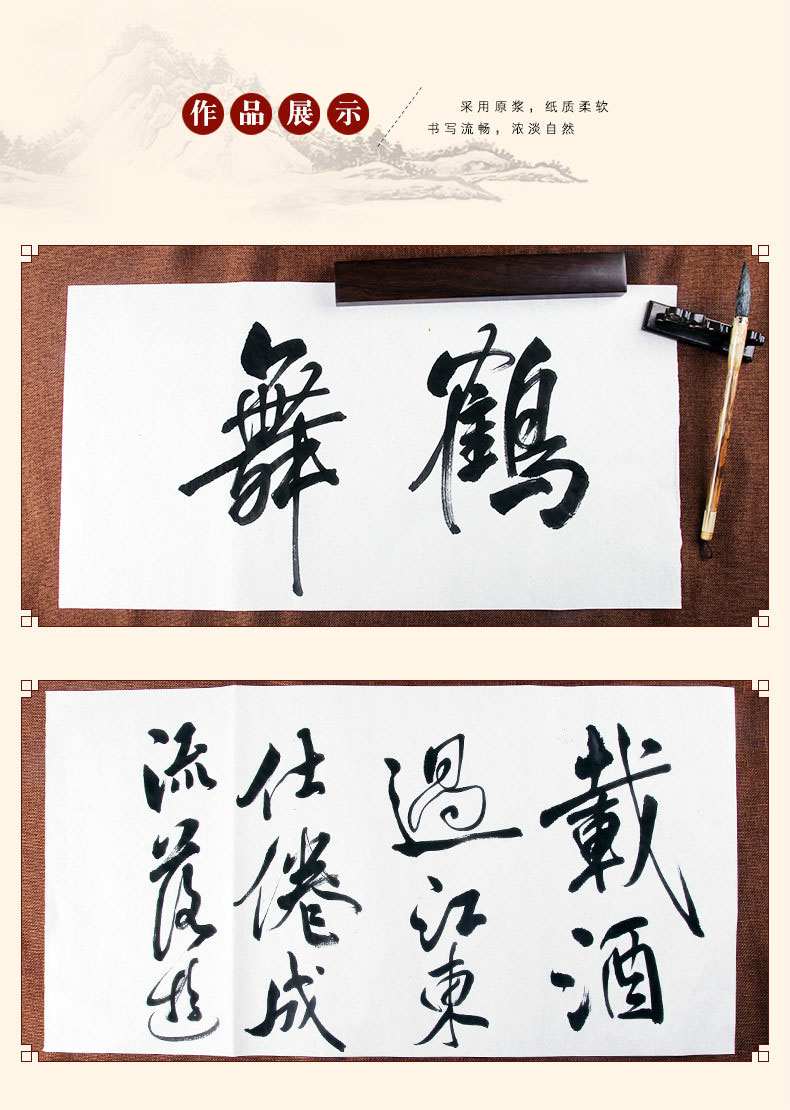 作品展示
采用原浆，纸质柔软
书写流畅，浓淡自然
鶴舞
載酒
過江東
仕倦成
流落遊